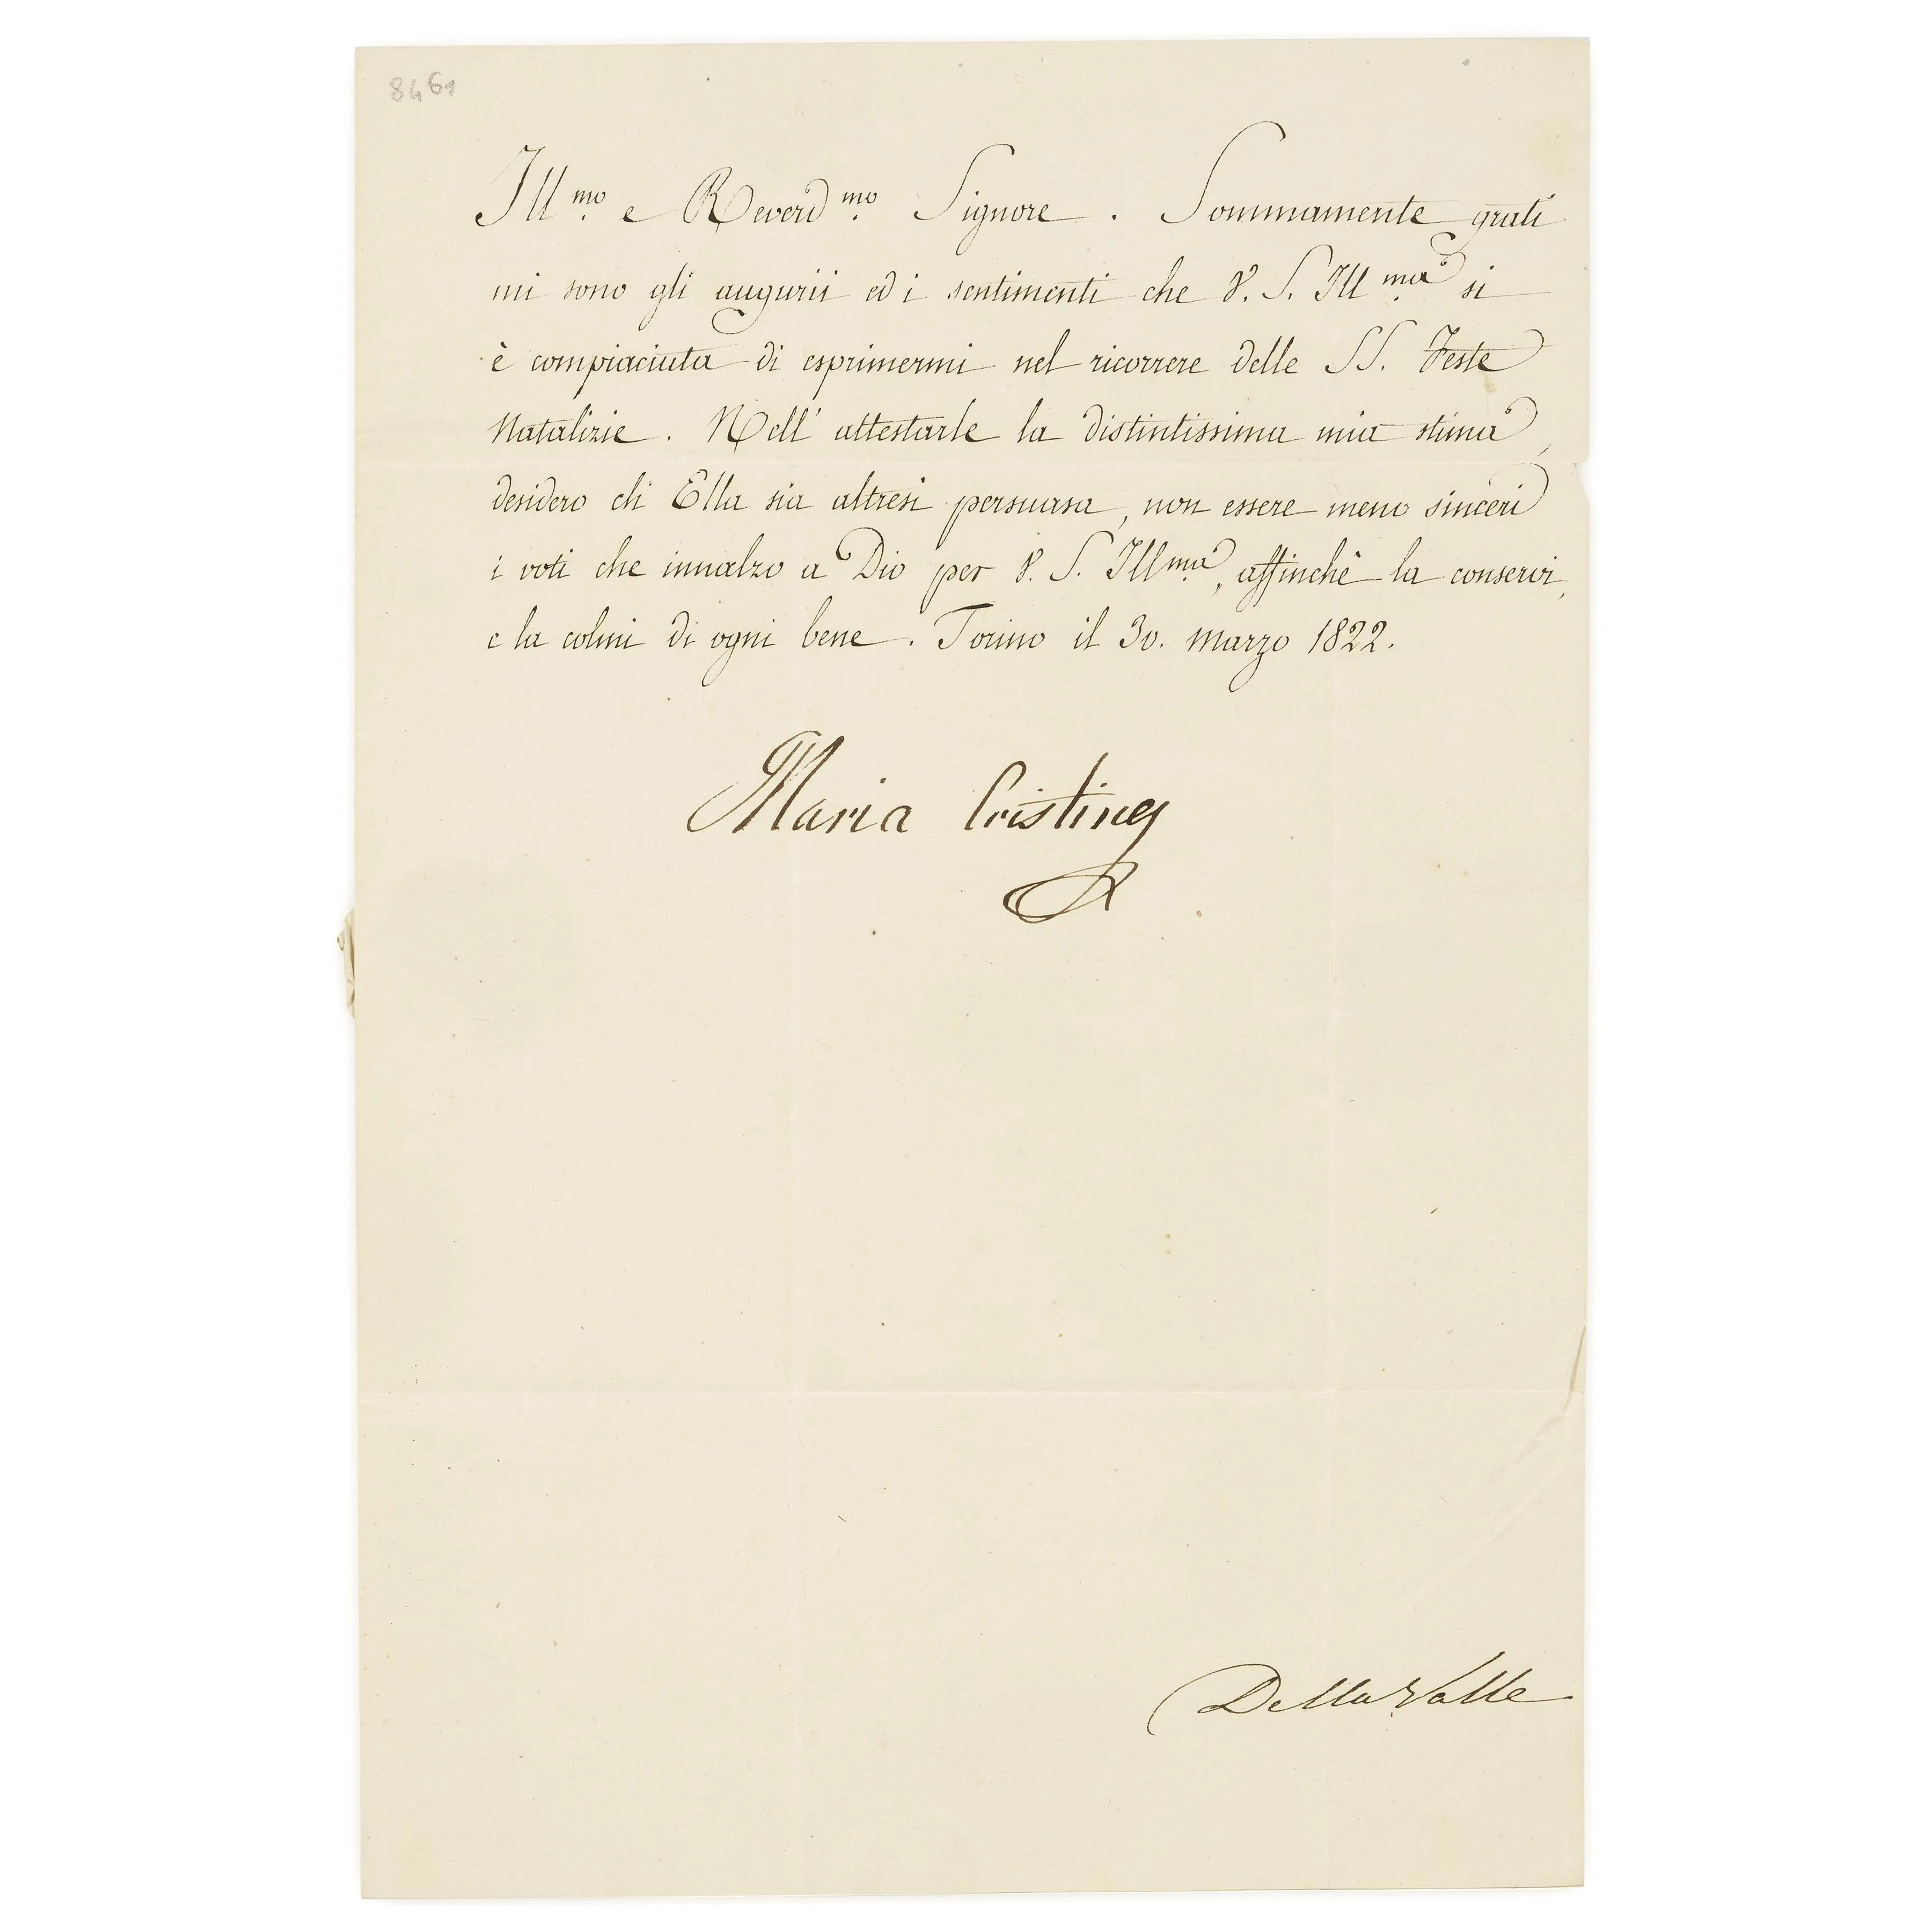 8461
Ill.mo e Reverd.mo Signore. Sommamente grati
mi sono gli augurii ed i sentimenti che V. S. Ill.ma si
è compiaciuta di esprimermi nel ricorrere delle SS. Feste
Natalizie. Nell' attestarle la distintissima mia stima,
desidero ch' Ella sia altresì persuasa, non essere meno sinceri
i voti che innalzo a Dio per V. S. Ill.ma, affinchè la conservi,
e la colmi di ogni bene. Torino il 30. Marzo 1822.
Maria Cristina
Della Valle